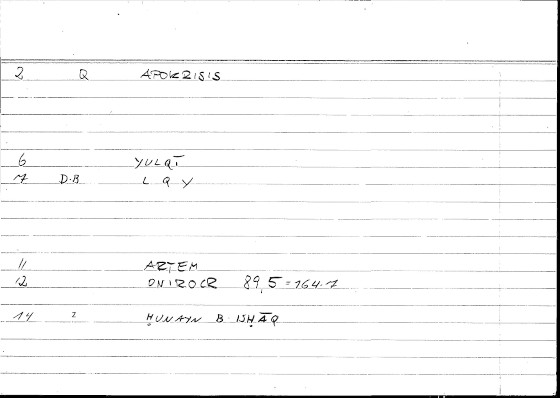 2 Q APOKRISIS
6 YULQĪ
7 D.B L Q Y
11 ARTEM
12 ONIROCR 89,5 = 164.7
14 2 ḤUNAYN B ISḤĀQ